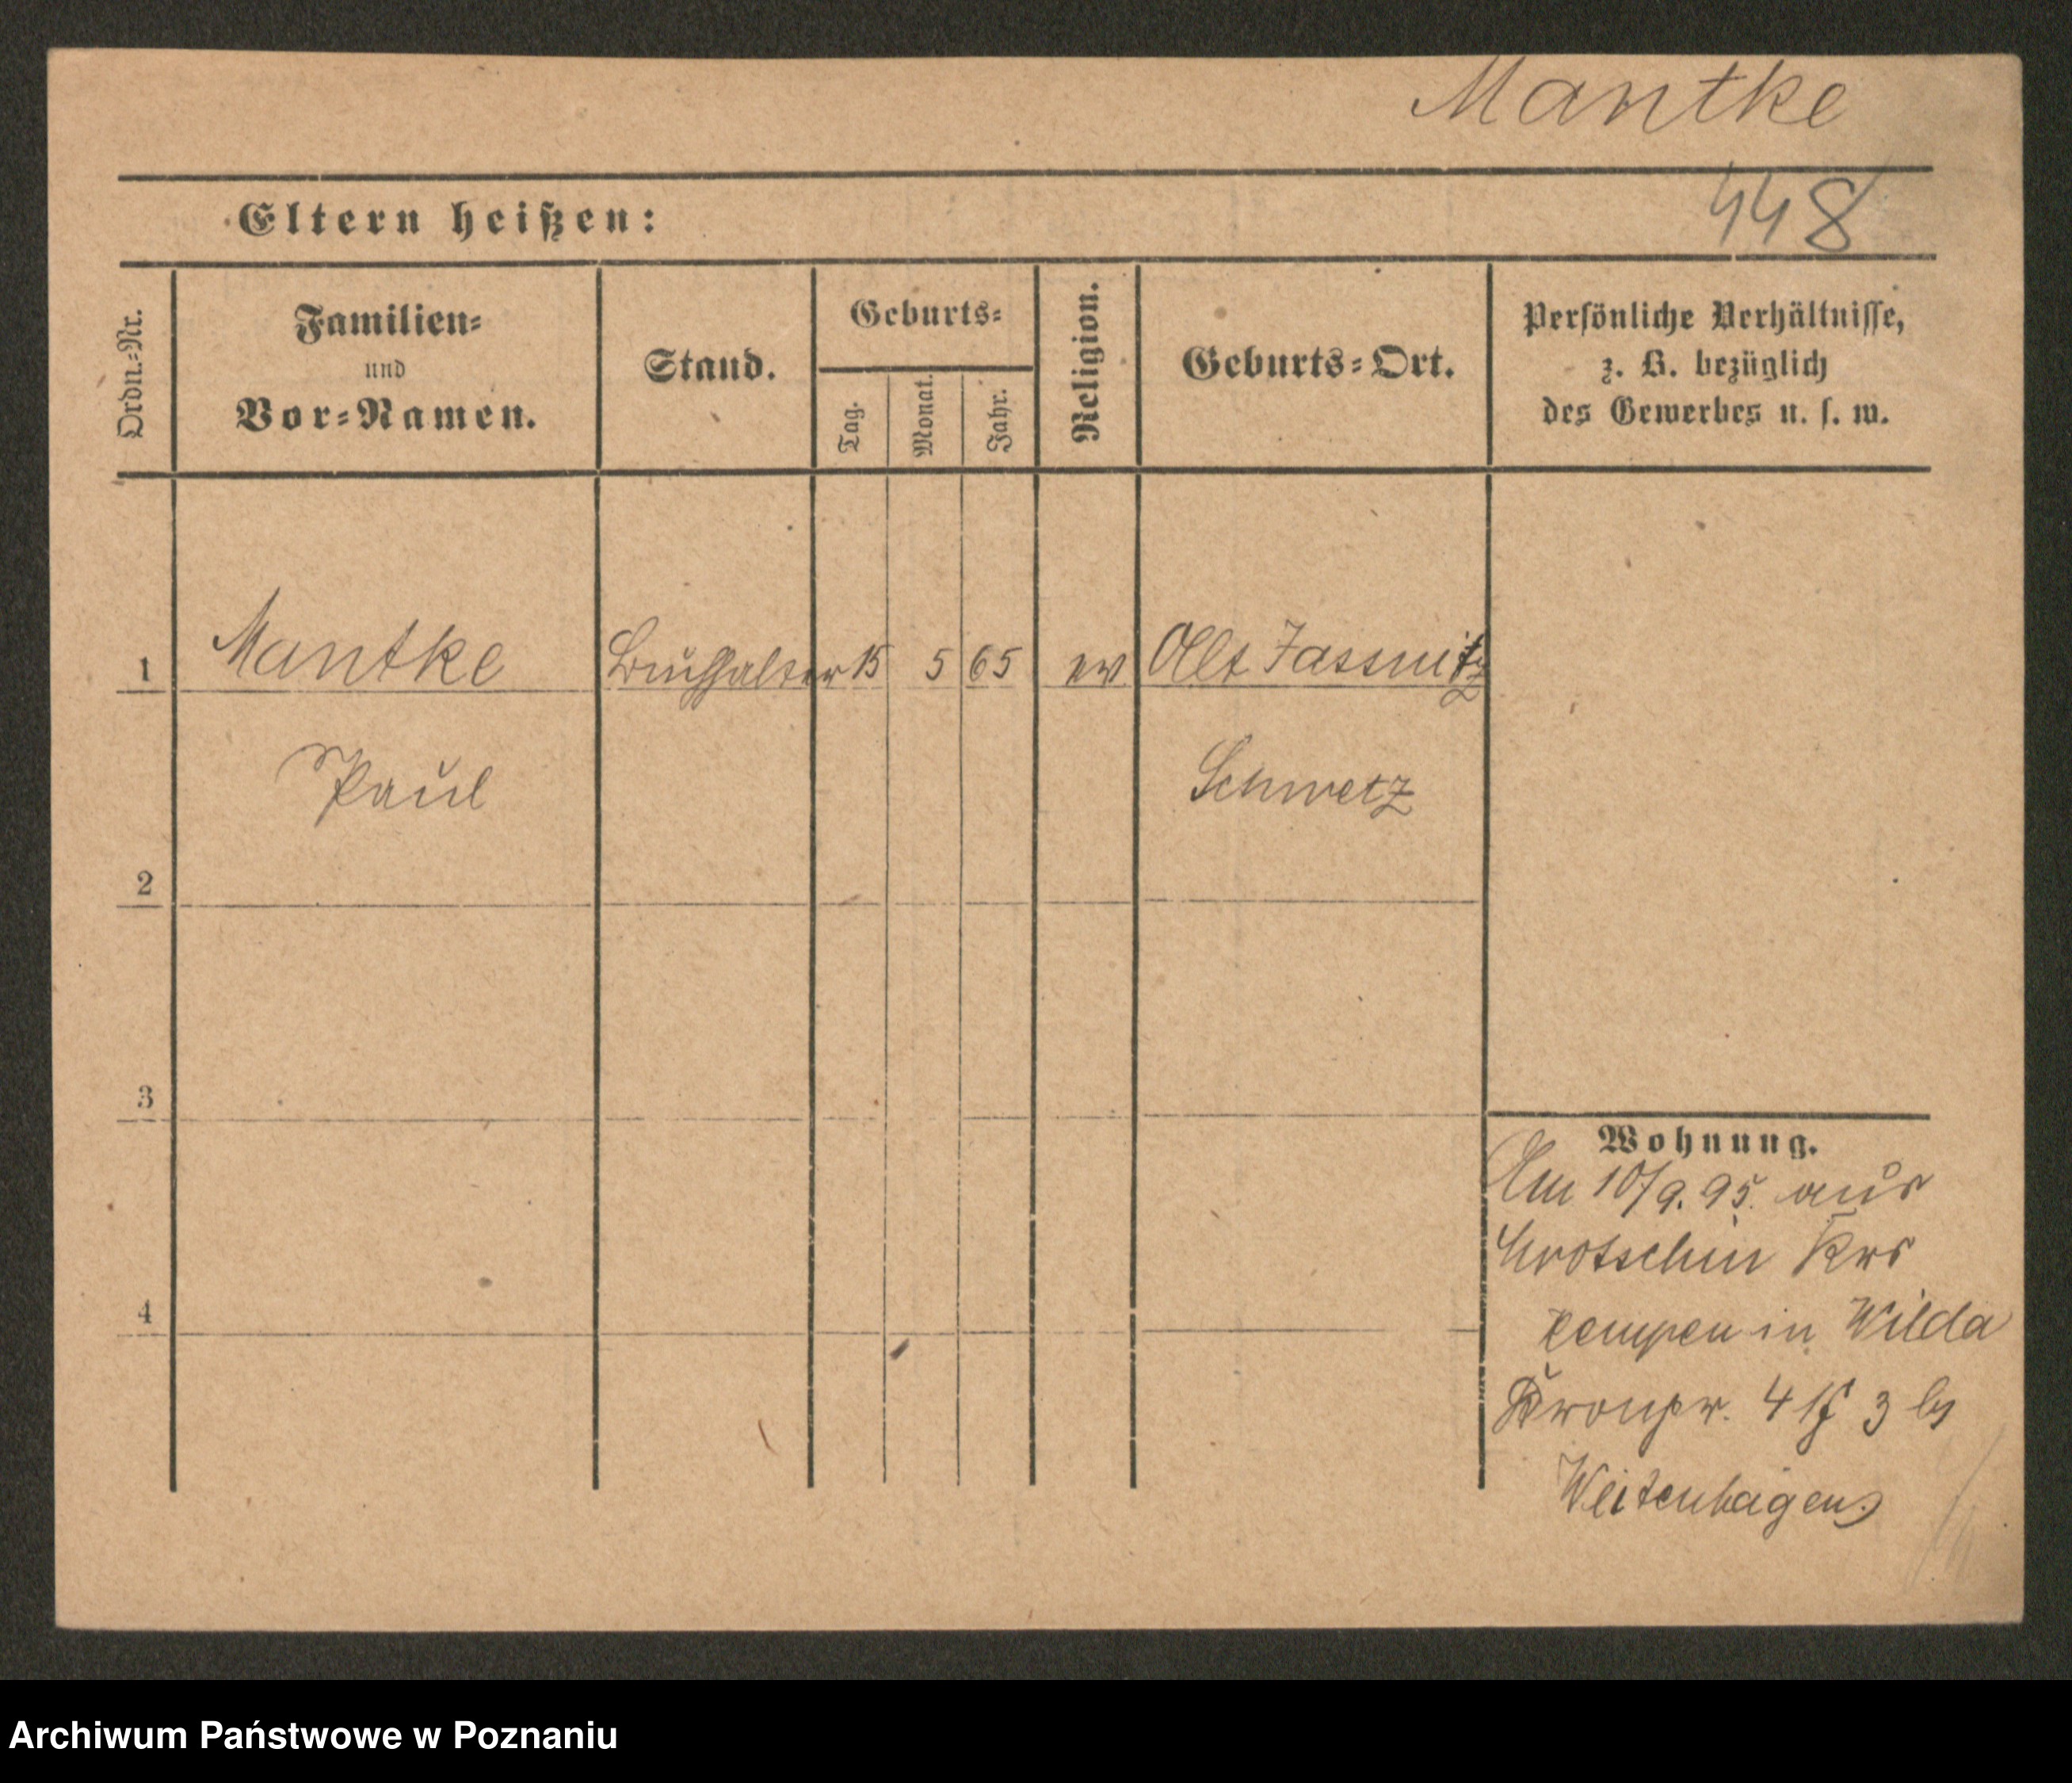 Mantke
448
Eltern heißen:
Ordn.=Nr.
Familien=
und
Vor=Namen.
Stand.
Geburts=
Tag.
Monat.
Jahr.
Religion.
Geburts=Ort.
Persönliche Verhältnisse,
z. B. bezüglich
des Gewerbes u. s. w.
1 Mantke Buchhalter 15 5 65 ev Alt Jassnitz
Paul Schwetz
2
3
4
Wohnung.
Am 10/9. 95. aus
Krotschin Krs
Kempen in Wilda
Kronpr. 4 3
Weitenhagen
Archiwum Państwowe w Poznaniu